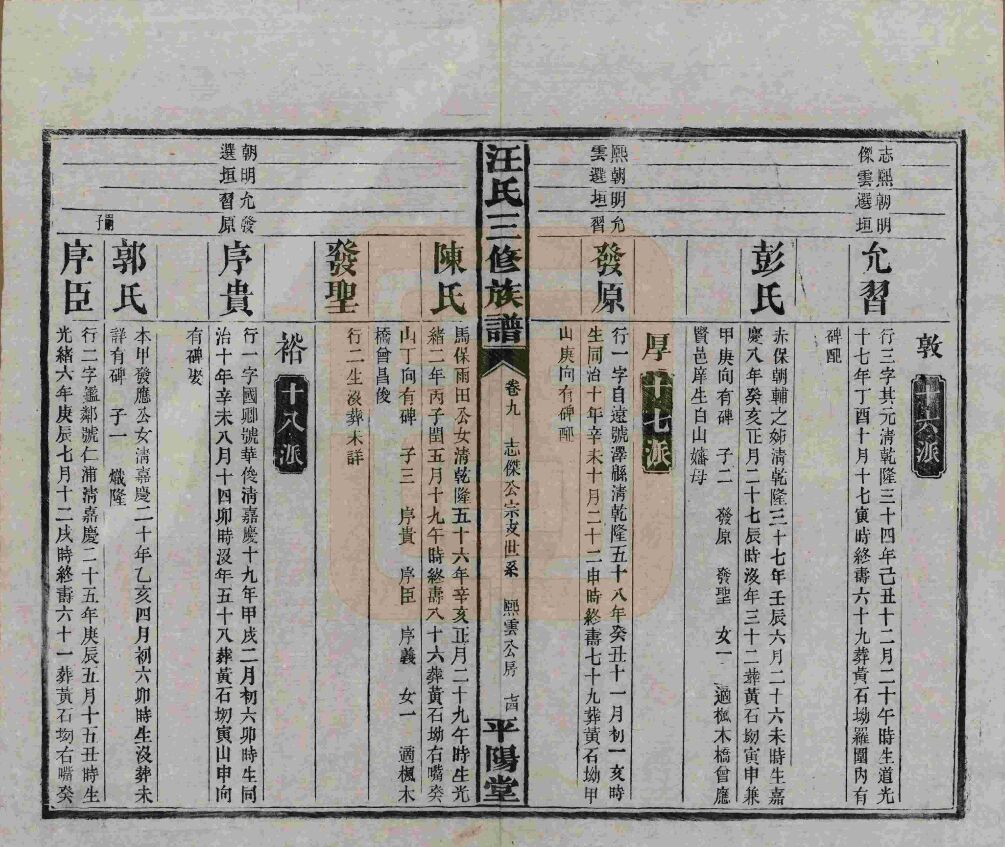 敦 十六派
志熙朝明
傑雲選垣
允習
行三字其元清乾隆三十四年己丑十二月二十午時生道光
十七年丁酉十月十七寅時終壽六十九葬黃石坳羅圍內有
碑配
彭氏
赤保朝輔之姊清乾隆三十七年壬辰六月二十六未時生嘉
慶八年癸亥正月二十七辰時沒年三十二葬黃石坳寅申兼
甲庚向有碑 子二 發原 發聖 女一 適楓木橋曾應
賢邑庠生白山嬸母
厚 十七派
熙朝明允
雲選垣習
發原
行一字自遠號澤縣清乾隆五十八年癸丑十一月初一亥時
生同治十年辛未十月二十二申時終壽七十九葬黃石坳甲
山庚向有碑配
汪氏三修族譜 卷九 志傑公宗支世系 熙雲公房 平陽堂
陳氏
馬保雨田公女清乾隆五十六年辛亥正月二十九午時生光
緒二年丙子閏五月十九午時終壽八十六葬黃石坳右嘴癸
山丁向有碑 子三 序貴 序臣 序義 女一 適楓木
橋曾昌俊
發聖
行二生沒葬未詳
裕 十八派
朝明允發
選垣習原
序貴
行一字國卿號華俊清嘉慶十九年甲戌二月初六卯時生同
治十年辛未八月十四卯時沒年五十八葬黃石坳寅山申向
有碑娶
郭氏
本甲發應公女清嘉慶二十年乙亥四月初六卯時生沒葬未
詳有碑 子一 熾隆
嗣子
序臣
行二字鑑鄰號仁浦清嘉慶二十五年庚辰五月十五丑時生
光緒六年庚辰七月十二戌時終壽六十一葬黃石坳右嘴癸